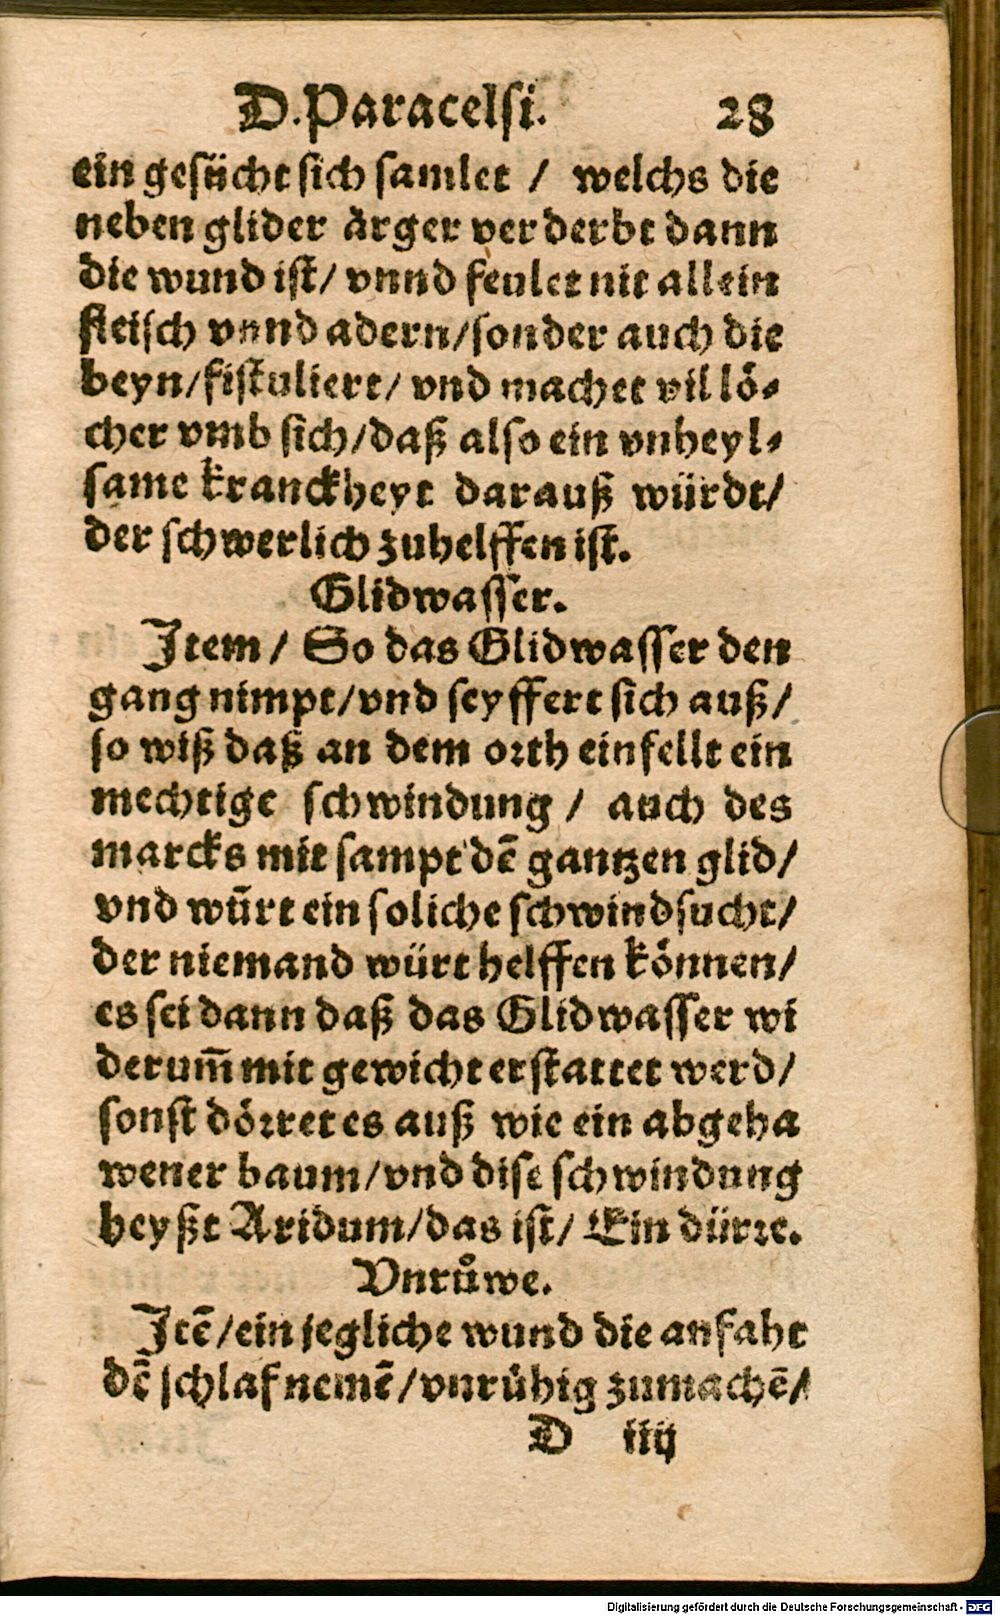 D. Paracelsi. 28
ein gesücht sich samlet / welchs die
neben glider ärger verderbt dann
die wund ist/ vnnd feulet nit allein
fleisch vnnd adern/sonder auch die
beyn/fistuliert/ vnd machet vil lö⸗
cher vmb sich/daß also ein vnheyl⸗
same kranckheyt darauß würdt/
der schwerlich zuhelffen ist.
Glidwasser.
Item/ So das Glidwasser den
gang nimpt/vnd seyffert sich auß/
so wiß daß an dem orth einfellt ein
mechtige schwindung / auch des
marcks mit sampt dē gantzen glid/
vnd würt ein soliche schwindsucht/
der niemand würt helffen können/
es sei dann daß das Glidwasser wi
derum̄ mit gewicht erstattet werd/
sonst dörret es auß wie ein abgeha
wener baum/vnd dise schwindung
heyßt Aridum/das ist/ Ein dürre.
Vnrůwe.
Itē/ein jegliche wund die anfaht
dē schlaf nemē/vnrühig zumachē/
D iiij
Digitalisierung gefördert durch die Deutsche Forschungsgemeinschaft - DFG